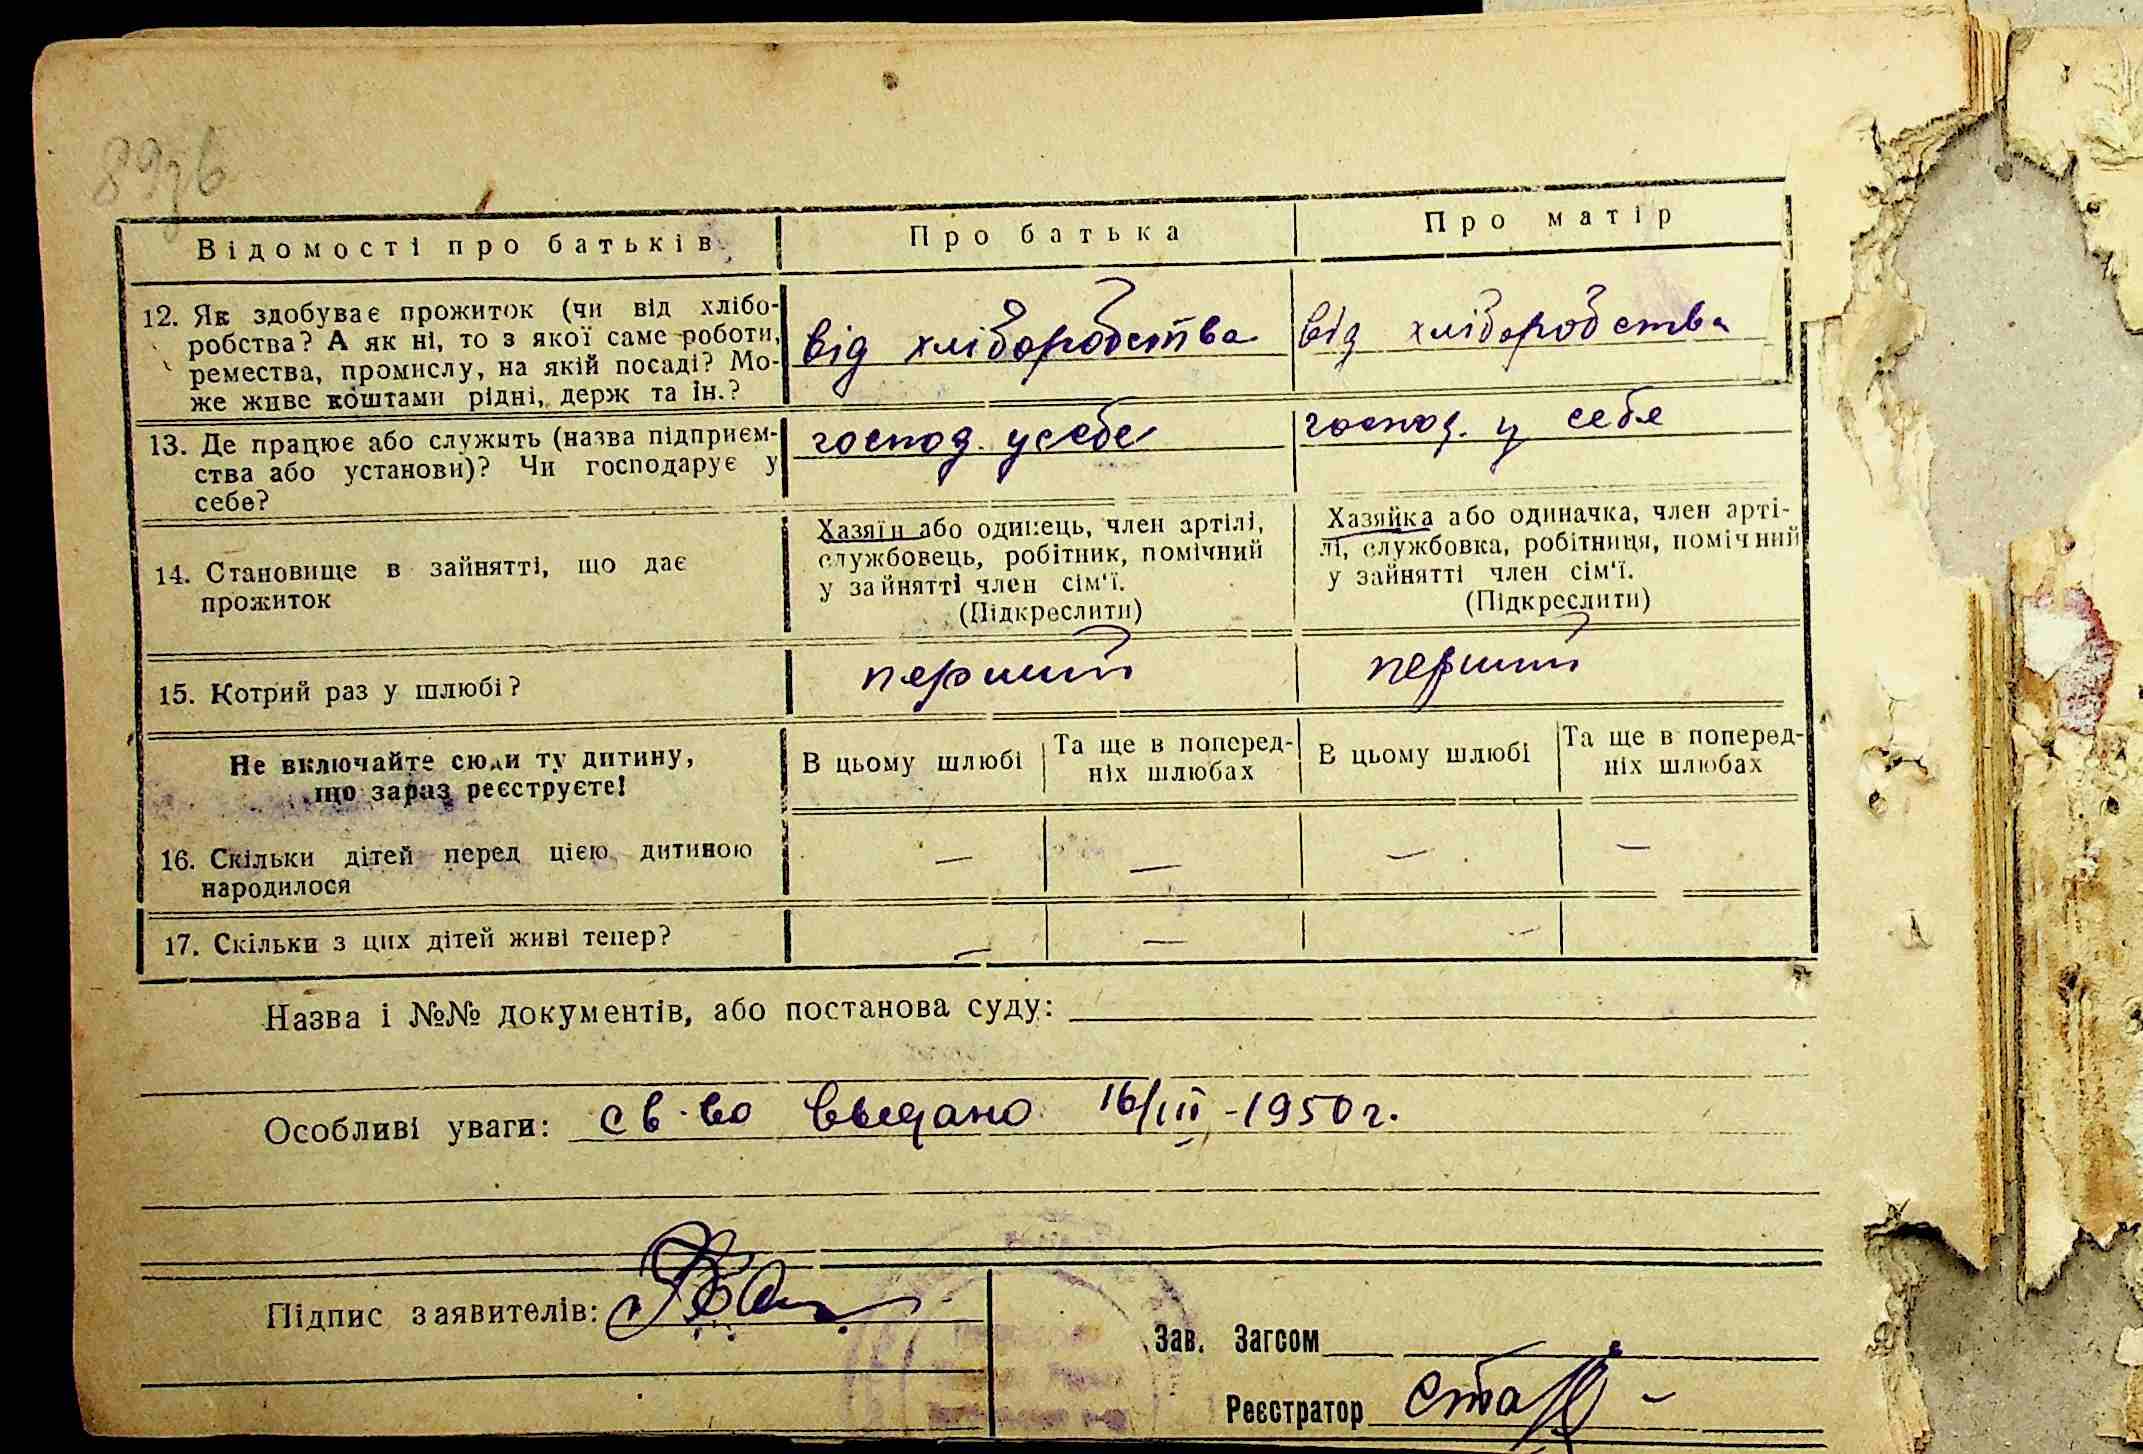 Відомості про батьків
Про батька
Про матір
12. Як здобуває прожиток (чи від хлібо-
робства? А як ні, то з якої саме роботи,
ремества, промислу, на якій посаді? Мо-
же живе коштами рідні, держ та ін.?
від хліборобства
від хліборобства
13. Де працює або служить (назва підприєм-
ства або установи)? Чи господарує у
себе?
господ. у себе
господ. у себе
14. Становище в зайнятті, що дає
прожиток
Хазяїн або одинець, член артілі,
службовець, робітник, помічний
у зайнятті член сім'ї.
(Підкреслити)
Хазяйка або одиначка, член арті-
лі, службовка, робітниця, помічний
у зайнятті член сім'ї.
(Підкреслити)
15. Котрий раз у шлюбі?
перший
перший
Не включайте сюди ту дитину,
що зараз реєструєте!
В цьому шлюбі
Та ще в поперед-
ніх шлюбах
В цьому шлюбі
Та ще в поперед-
ніх шлюбах
16. Скільки дітей перед цією дитиною
народилося
— — — —
17. Скільки з цих дітей живі тепер?
— — —
Назва і №№ документів, або постанова суду:
Особливі уваги: св-во выдано 16/III-1950 г.
Підпис заявителів:
Зав. Загсом
Реєстратор